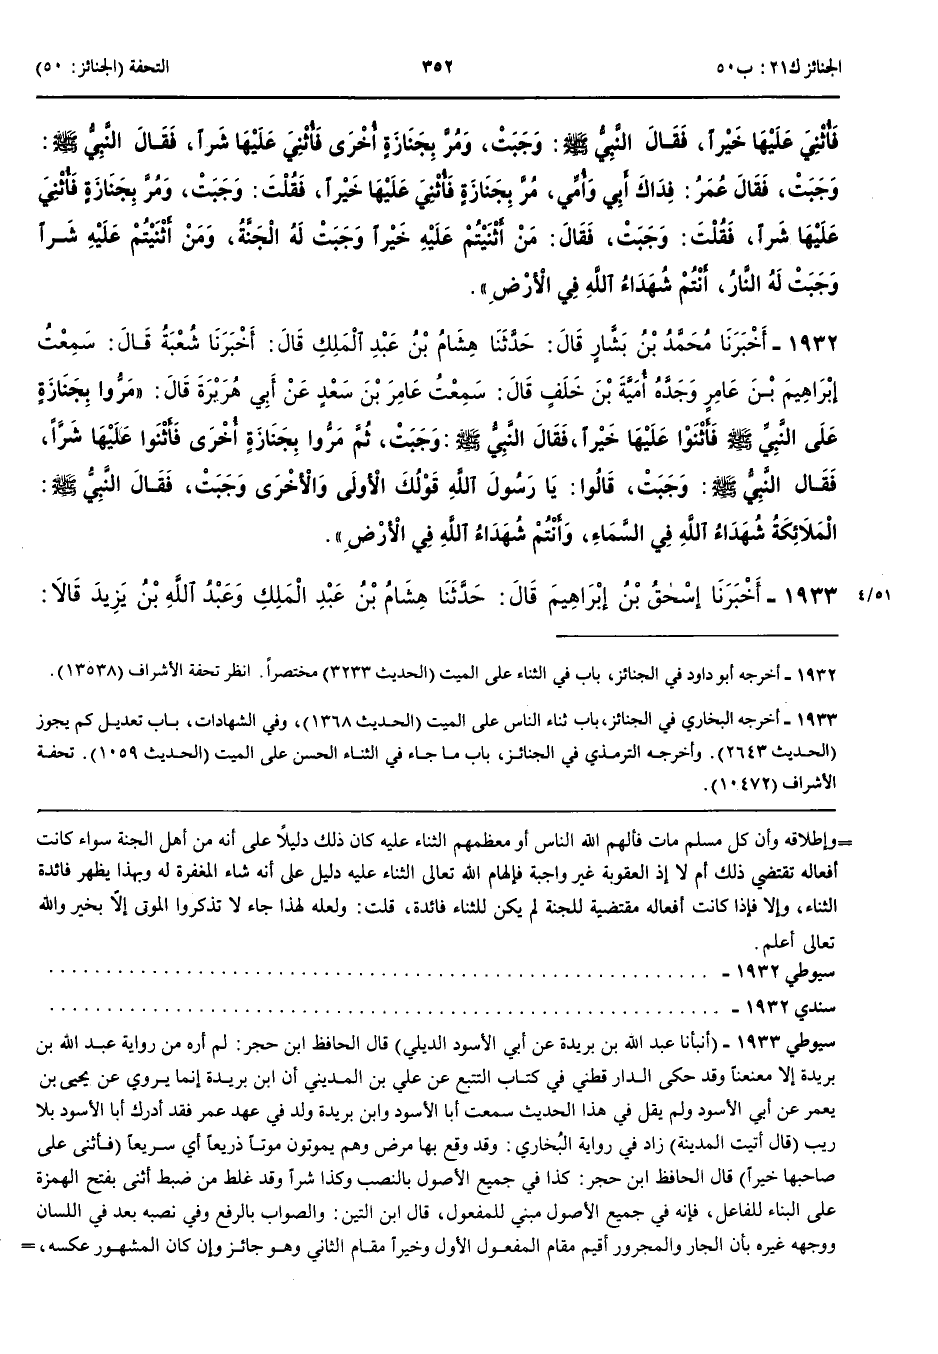 الجنائز ك٢١: ب٥٠ ٣٥٢ التحفة (الجنائز: ٥٠)
فَأُثْنِيَ عَلَيْهَا خَيْراً، فَقَالَ النَّبِيُّ ﷺ: وَجَبَتْ، وَمُرَّ بِجَنَازَةٍ أُخْرَى فَأُثْنِيَ عَلَيْهَا شَراً، فَقَالَ النَّبِيُّ ﷺ:
وَجَبَتْ، فَقَالَ عُمَرُ: فِدَاكَ أَبِي وَأُمِّي، مُرَّ بِجَنَازَةٍ فَأُثْنِيَ عَلَيْهَا خَيْراً، فَقُلْتَ: وَجَبَتْ، وَمُرَّ بِجَنَازَةٍ فَأُثْنِيَ
عَلَيْهَا شَراً، فَقُلْتَ: وَجَبَتْ، فَقَالَ: مَنْ أَثْنَيْتُمْ عَلَيْهِ خَيْراً وَجَبَتْ لَهُ الْجَنَّةُ، وَمَنْ أَثْنَيْتُمْ عَلَيْهِ شَراً
وَجَبَتْ لَهُ النَّارُ، أَنْتُمْ شُهَدَاءُ اللَّهِ فِي الْأَرْضِ».
١٩٣٢ ـ أَخْبَرَنَا مُحَمَّدُ بْنُ بَشَّارٍ قَالَ: حَدَّثَنَا هِشَامُ بْنُ عَبْدِ الْمَلِكِ قَالَ: أَخْبَرَنَا شُعْبَةُ قَالَ: سَمِعْتُ
إِبْرَاهِيمَ بْنَ عَامِرٍ وَجَدُّهُ أُمَيَّةَ بْنَ خَلَفٍ قَالَ: سَمِعْتُ عَامِرَ بْنَ سَعْدٍ عَنْ أَبِي هُرَيْرَةَ قَالَ: «مَرُّوا بِجَنَازَةٍ
عَلَى النَّبِيِّ ﷺ فَأَثْنَوْا عَلَيْهَا خَيْراً، فَقَالَ النَّبِيُّ ﷺ: وَجَبَتْ، ثُمَّ مَرُّوا بِجَنَازَةٍ أُخْرَى فَأَثْنَوا عَلَيْهَا شَرًّاً،
فَقَال النَّبِيُّ ﷺ: وَجَبَتْ، قَالُوا: يَا رَسُولَ اللَّهِ قَوْلُكَ الْأُولَى وَالْأُخْرَى وَجَبَتْ، فَقَالَ النَّبِيُّ ﷺ:
الْمَلَائِكَةُ شُهَدَاءُ اللَّهِ فِي السَّمَاءِ، وَأَنْتُمْ شُهَدَاءُ اللَّهِ فِي الْأَرْضِ».
١٩٣٣ ـ أَخْبَرَنَا إِسْحٰقُ بْنُ إِبْرَاهِيمَ قَالَ: حَدَّثَنَا هِشَامُ بْنُ عَبْدِ الْمَلِكِ وَعَبْدُ اللَّهِ بْنُ يَزِيدَ قَالَا: ٤/٥١
١٩٣٢ ـ أخرجه أبو داود في الجنائز، باب في الثناء على الميت (الحديث ٣٢٣٣) مختصراً. انظر تحفة الأشراف (١٣٥٣٨).
١٩٣٣ ـ أخرجه البخاري في الجنائز، باب ثناء الناس على الميت (الحديث ١٣٦٨)، وفي الشهادات، باب تعديل كم يجوز
(الحديث ٢٦٤٣). وأخرجه الترمذي في الجنائز، باب ما جاء في الثناء الحسن على الميت (الحديث ١٠٥٩). تحفة
الأشراف (١٠٤٧٢).
=وإطلاقه وأن كل مسلم مات فألهم الله الناس أو معظمهم الثناء عليه كان ذلك دليلاً على أنه من أهل الجنة سواء كانت
أفعاله تقتضي ذلك أم لا إذ العقوبة غير واجبة فإلهام الله تعالى الثناء عليه دليل على أنه شاء المغفرة له وبهذا يظهر فائدة
الثناء، وإلا فإذا كانت أفعاله مقتضية للجنة لم يكن للثناء فائدة، قلت: ولعله لهذا جاء لا تذكروا الموتى إلّا بخير والله
تعالى أعلم.
سيوطي ١٩٣٢ ـ ..................................................
سندي ١٩٣٢ ـ ..................................................
سيوطي ١٩٣٣ ـ (أنبأنا عبد الله بن بريدة عن أبي الأسود الديلي) قال الحافظ ابن حجر: لم أره من رواية عبد الله بن
بريدة إلا معنعناً وقد حكى الدار قطني في كتاب التتبع عن علي بن المديني أن ابن بريدة إنما يروي عن يحيى بن
يعمر عن أبي الأسود ولم يقل في هذا الحديث سمعت أبا الأسود وابن بريدة ولد في عهد عمر فقد أدرك أبا الأسود بلا
ريب (قال أتيت المدينة) زاد في رواية البُخاري: وقد وقع بها مرض وهم يموتون موتاً ذريعاً أي سريعاً (فأثنى على
صاحبها خيراً) قال الحافظ ابن حجر: كذا في جميع الأصول بالنصب وكذا شراً وقد غلط من ضبط أثنى بفتح الهمزة
على البناء للفاعل، فإنه في جميع الأصول مبني للمفعول، قال ابن التين: والصواب بالرفع وفي نصبه بعد في اللسان
ووجهه غيره بأن الجار والمجرور أقيم مقام المفعول الأول وخيراً مقام الثاني وهو جائز وإن كان المشهور عكسه، =